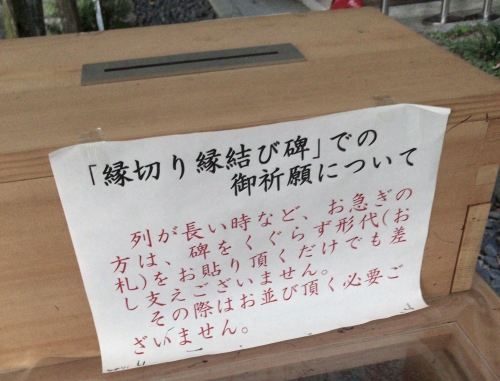 「縁切り縁結び碑」での
御祈願について
列が長い時など、お急ぎの
方は、碑をくぐらず形代(お
札)をお貼り頂くだけでも差
し支えございません。
その際はお並び頂く必要ご
ざいません。